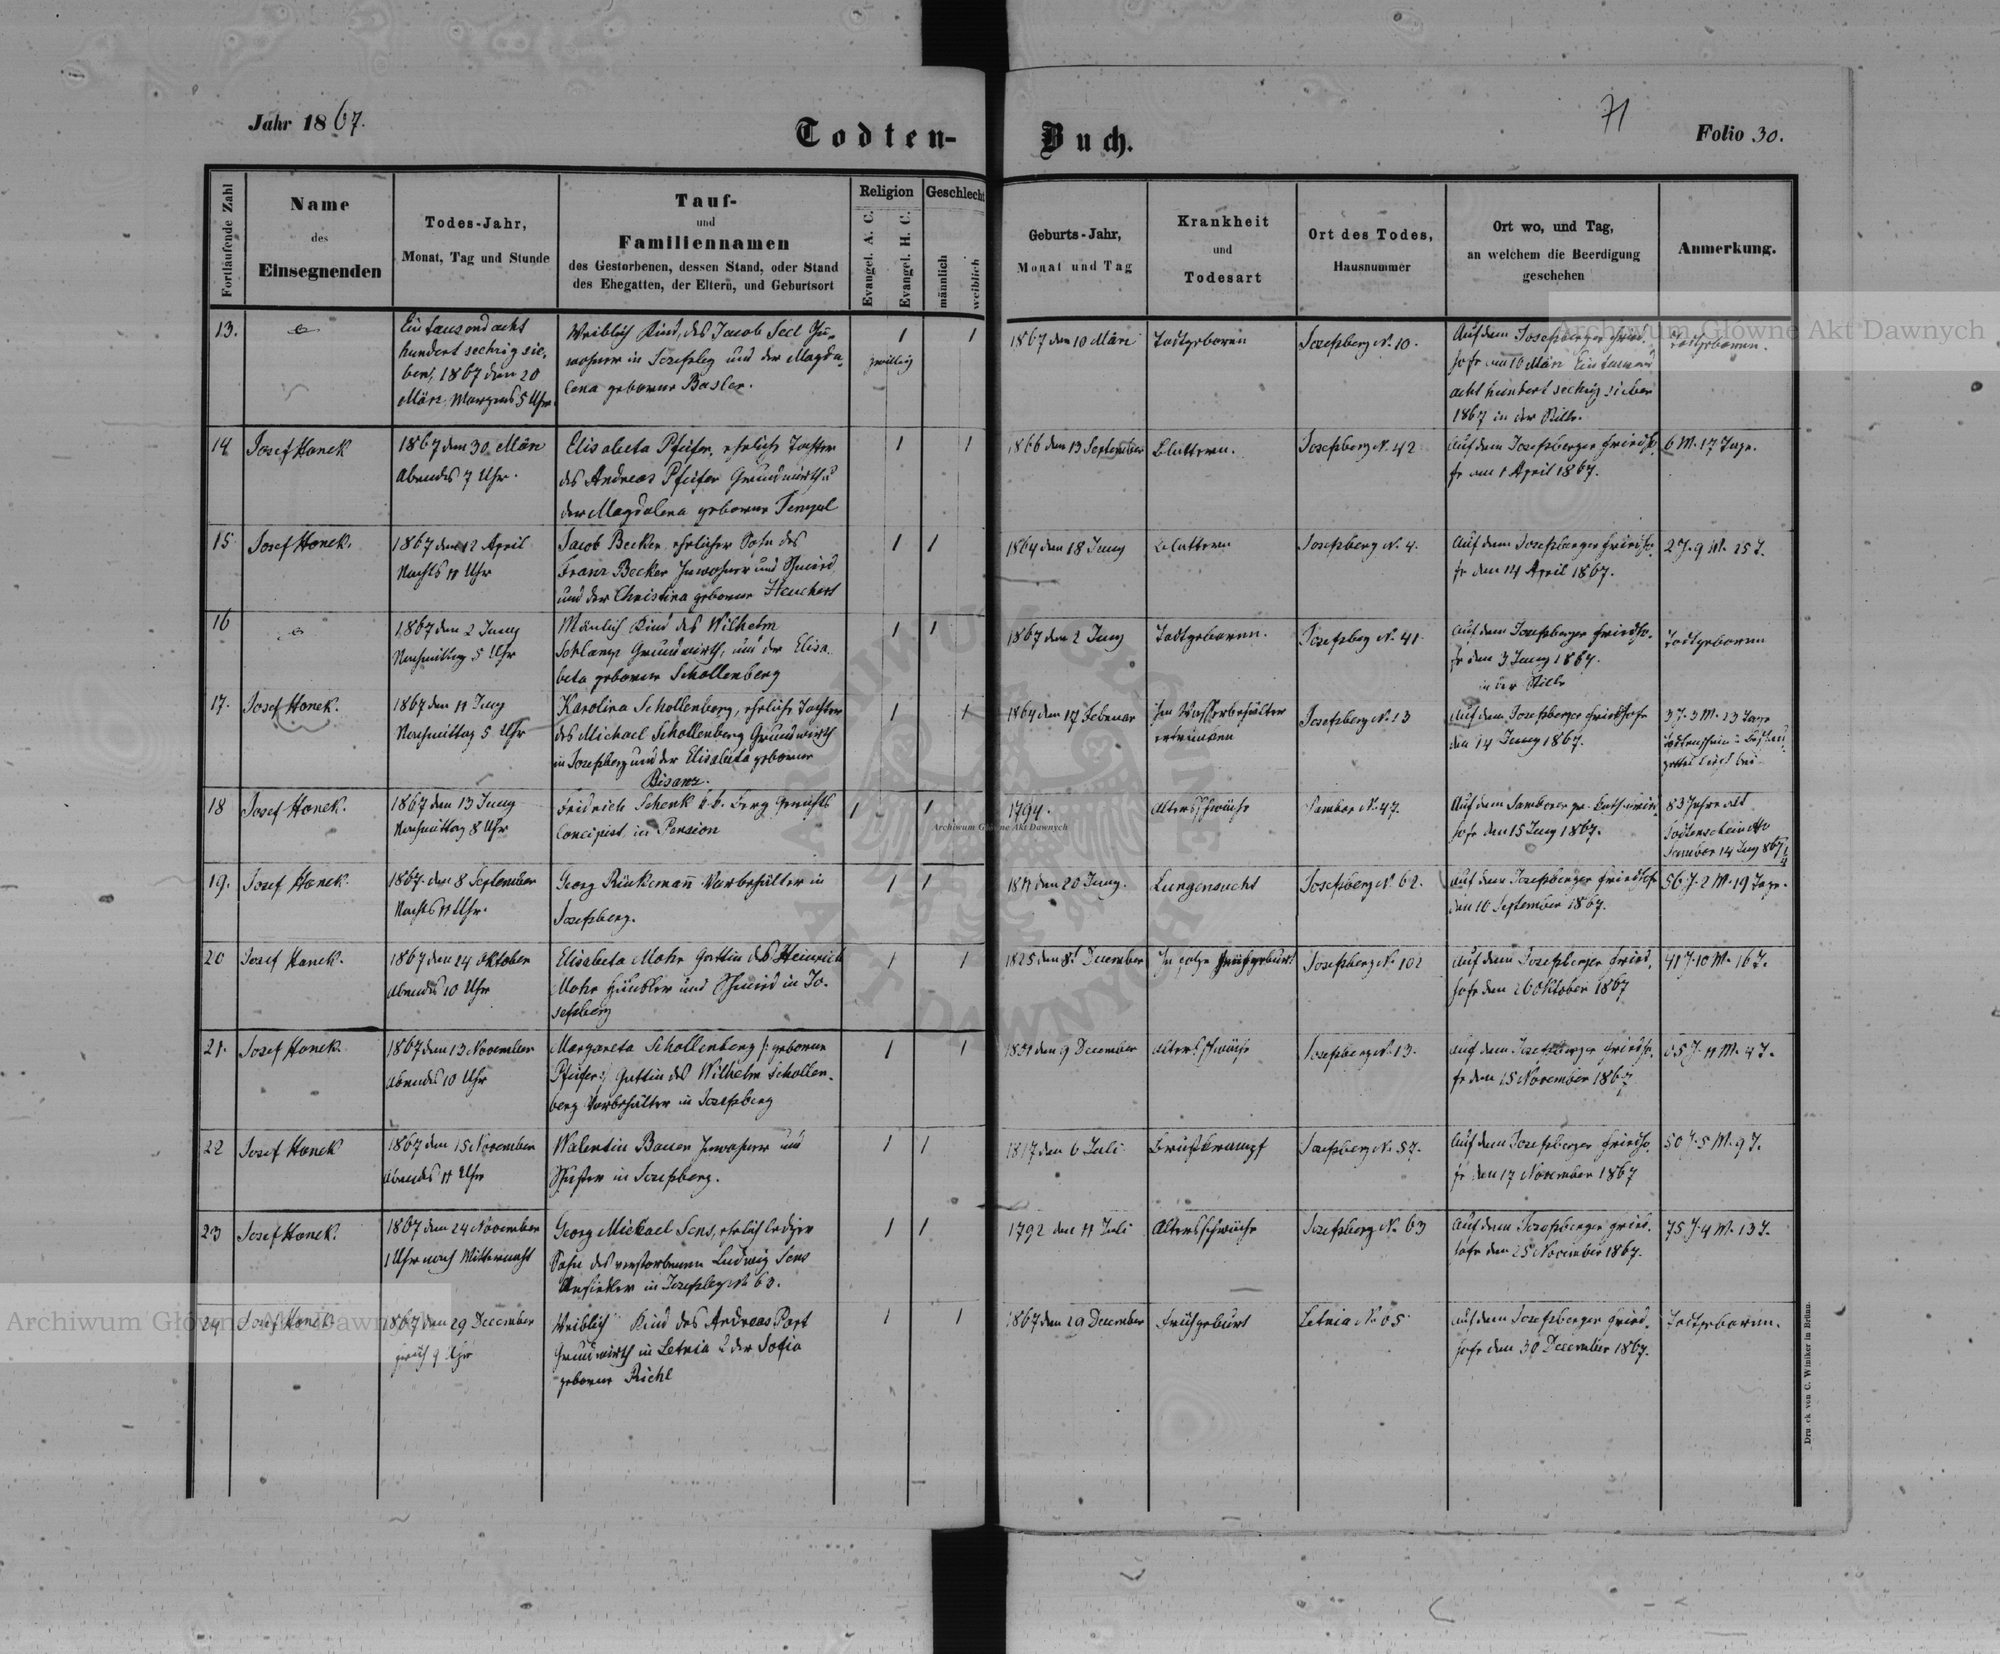 Jahr 1867.
Todten-
Buch.
71
Folio 30.
Fortlaufende Zahl
Name
des
Einsegnenden
Todes-Jahr,
Monat, Tag und Stunde
Tauf-
und
Familiennamen
des Gestorbenen, dessen Stand, oder Stand
des Ehegatten, der Eltern, und Geburtsort
Religion
Evangel. A. C.
Evangel. H. C.
Geschlecht
männlich
weiblich
Geburts-Jahr,
Monat und Tag
Krankheit
und
Todesart
Ort des Todes,
Hausnummer
Ort wo, und Tag,
an welchem die Beerdigung
geschehen
Anmerkung.
13.
Ein tausend acht
hundert sechzig sie-
ben, 1867 den
März, Morgens 5 Uhr.
Weiblich Kind, des Jacob Secl In-
wohner in Josefsbg und der Magda-
lena geborne Basler.
1
1
zwillig
1867 den 10 März
Todtgeboren
Josefsberg N. 10.
Auf dem Josefsberger Fried-
hofe am 10 März Ein tausend
acht hundert sechzig sieben
1867 in der Stille.
Todtgeboren.
14
Josef Hanek
1867 den 30 März
Abends 7 Uhr.
Elisabeta Pfeifer, ehrliche Tochter
des Andreas Pfeifer Grundwirth u
der Magdalena geborne
1
1
1866 den 13 September
Blattern.
Josefsberg N. 42
Auf dem Josefsberger Friedho-
fe am 1 April 1867.
6 M. 17 Tage.
15
Josef Hanek.
1867 den 12 April
Nachts 11 Uhr
Jacob Becker, ehrlicher Sohn des
Franz Becker Inwohner und Schmied
und der Christina geborne Heuchert
1
1
1864 den 18 Juny
Blattern
Josefsberg N. 4.
Auf dem Josefsberger Friedho-
fe den 14 April 1867.
2 J. 9 M. 25 T.
16
1867 den 2 Juny
Nachmittag 5 Uhr
Mänlich Kind des Wilhelm
Schlamp Grundwirth, und der Elisa-
beta geborne Schollenberg
1
1
1867 den 2 Juny
Todtgeboren.
Josefsberg N. 41.
Auf dem Josefsberger Friedho-
fe den 3 Juny 1867.
in der Stille
Todtgeboren
17.
Josef Hanek.
1867 den 11 Juny
Nachmittag 5 Uhr
Karolina Schollenberg, ehrliche Tochter
des Michael Schollenberg Grundwirth
in Josefsberg und der Elisabeta geborne
Bisanz.
1
1
1864 den 17 Februar
Im Wasserbehälter
ertrunken
Josefsberg N. 13
Auf dem Josefsberger Friedhofe
den 14 Juny 1867.
3 J. 3 M. 23 Tage
18
Josef Hanek.
1867 den 13 Juny
Nachmittag 8 Uhr
Fridrich Schenk k. k. Berg Gerichts
Concipist in Pension
1
1
1794.
Altersschwäche
Sambor N. 47.
Auf dem Samborer
hofe den 15 Juny 1867.
83 Jahre alt
Todtenschein dto
Sambor 14 Juny 867
19.
Josef Hanek.
1867 den 8 September
Nachts 11 Uhr.
Georg Rinkemañ Vorbehälter in
Josefsberg.
1
1
1811 den 20 Juny.
Lungensucht
Josefsberg N. 62.
Auf dem Josefsberger Friedhofe
den 10 September 1867.
56 J. 2 M. 19 Tage.
20
Josef Hanek.
1867 den 24 Oktober
Abends 10 Uhr
Elisabeta Mohr Gattin des Heinrich
Mohr Häusler und Schmied in Jo-
sefsberg
1
1
1825 den 8t December
In folge Frühgeburt
Josefsberg N. 102
Auf dem Josefsberger Fried-
hofe den 26 Oktober 1867
41 J. 10 M. 16 T.
21.
Josef Hanek.
1867 den 13 November
Abends 10 Uhr
Margareta Schollenberg /: geborne
Pfeifer :/ Gattin des Wilhelm Schollen-
berg Vorbehälter in Josefsberg
1
1
den 9 December
Altersschwäche
Josefsberg N. 13.
Auf dem Josefsberger Friedho-
fe den 15 November 1867
J. 11 M. 4 T.
22
Josef Hanek
1867 den 15 November
Abends 11 Uhr
Walentin Bauer Inwohner und
Schuster in Josefsberg.
1
1
1817 den 6 Juli
Brustkrampf
Josefsberg N. 57.
Auf dem Josefsberger Friedho-
fe den 17 November 1867
50 J. 5 M. 9 T.
23
Josef Hanek.
1867 den 24 November
1 Uhr nach Mitternacht
Georg Michael Sens, ehrlich lediger
Sohn des verstorbenen Ludwig Sens
Ansiedler in Josefsbg N. 63.
1
1
1792 den 11 Juli
Altersschwäche
Josefsberg N. 63
Auf dem Josefsberger Fried-
hofe den 25 November 1867.
75 J. 4 M. 13 T.
24
Josef Hanek
1867 den 29 December
früh 9 Uhr
Weiblich Kind des Andreas Port
Grundwirth in Letnia & der Sofia
geborne Richl
1
1
1867 den 29 December
Frühgeburt
Letnia N. 65
Auf dem Josefsberger Fried-
hofe den 30 December 1867.
Todtgeboren.
Druck von C. Winiker in Brünn.
Archiwum Główne Akt Dawnych
Archiwum Główne Akt Dawnych
Archiwum Główne Akt Dawnych
ARCHIWUM GŁÓWNE
AKT DAWNYCH